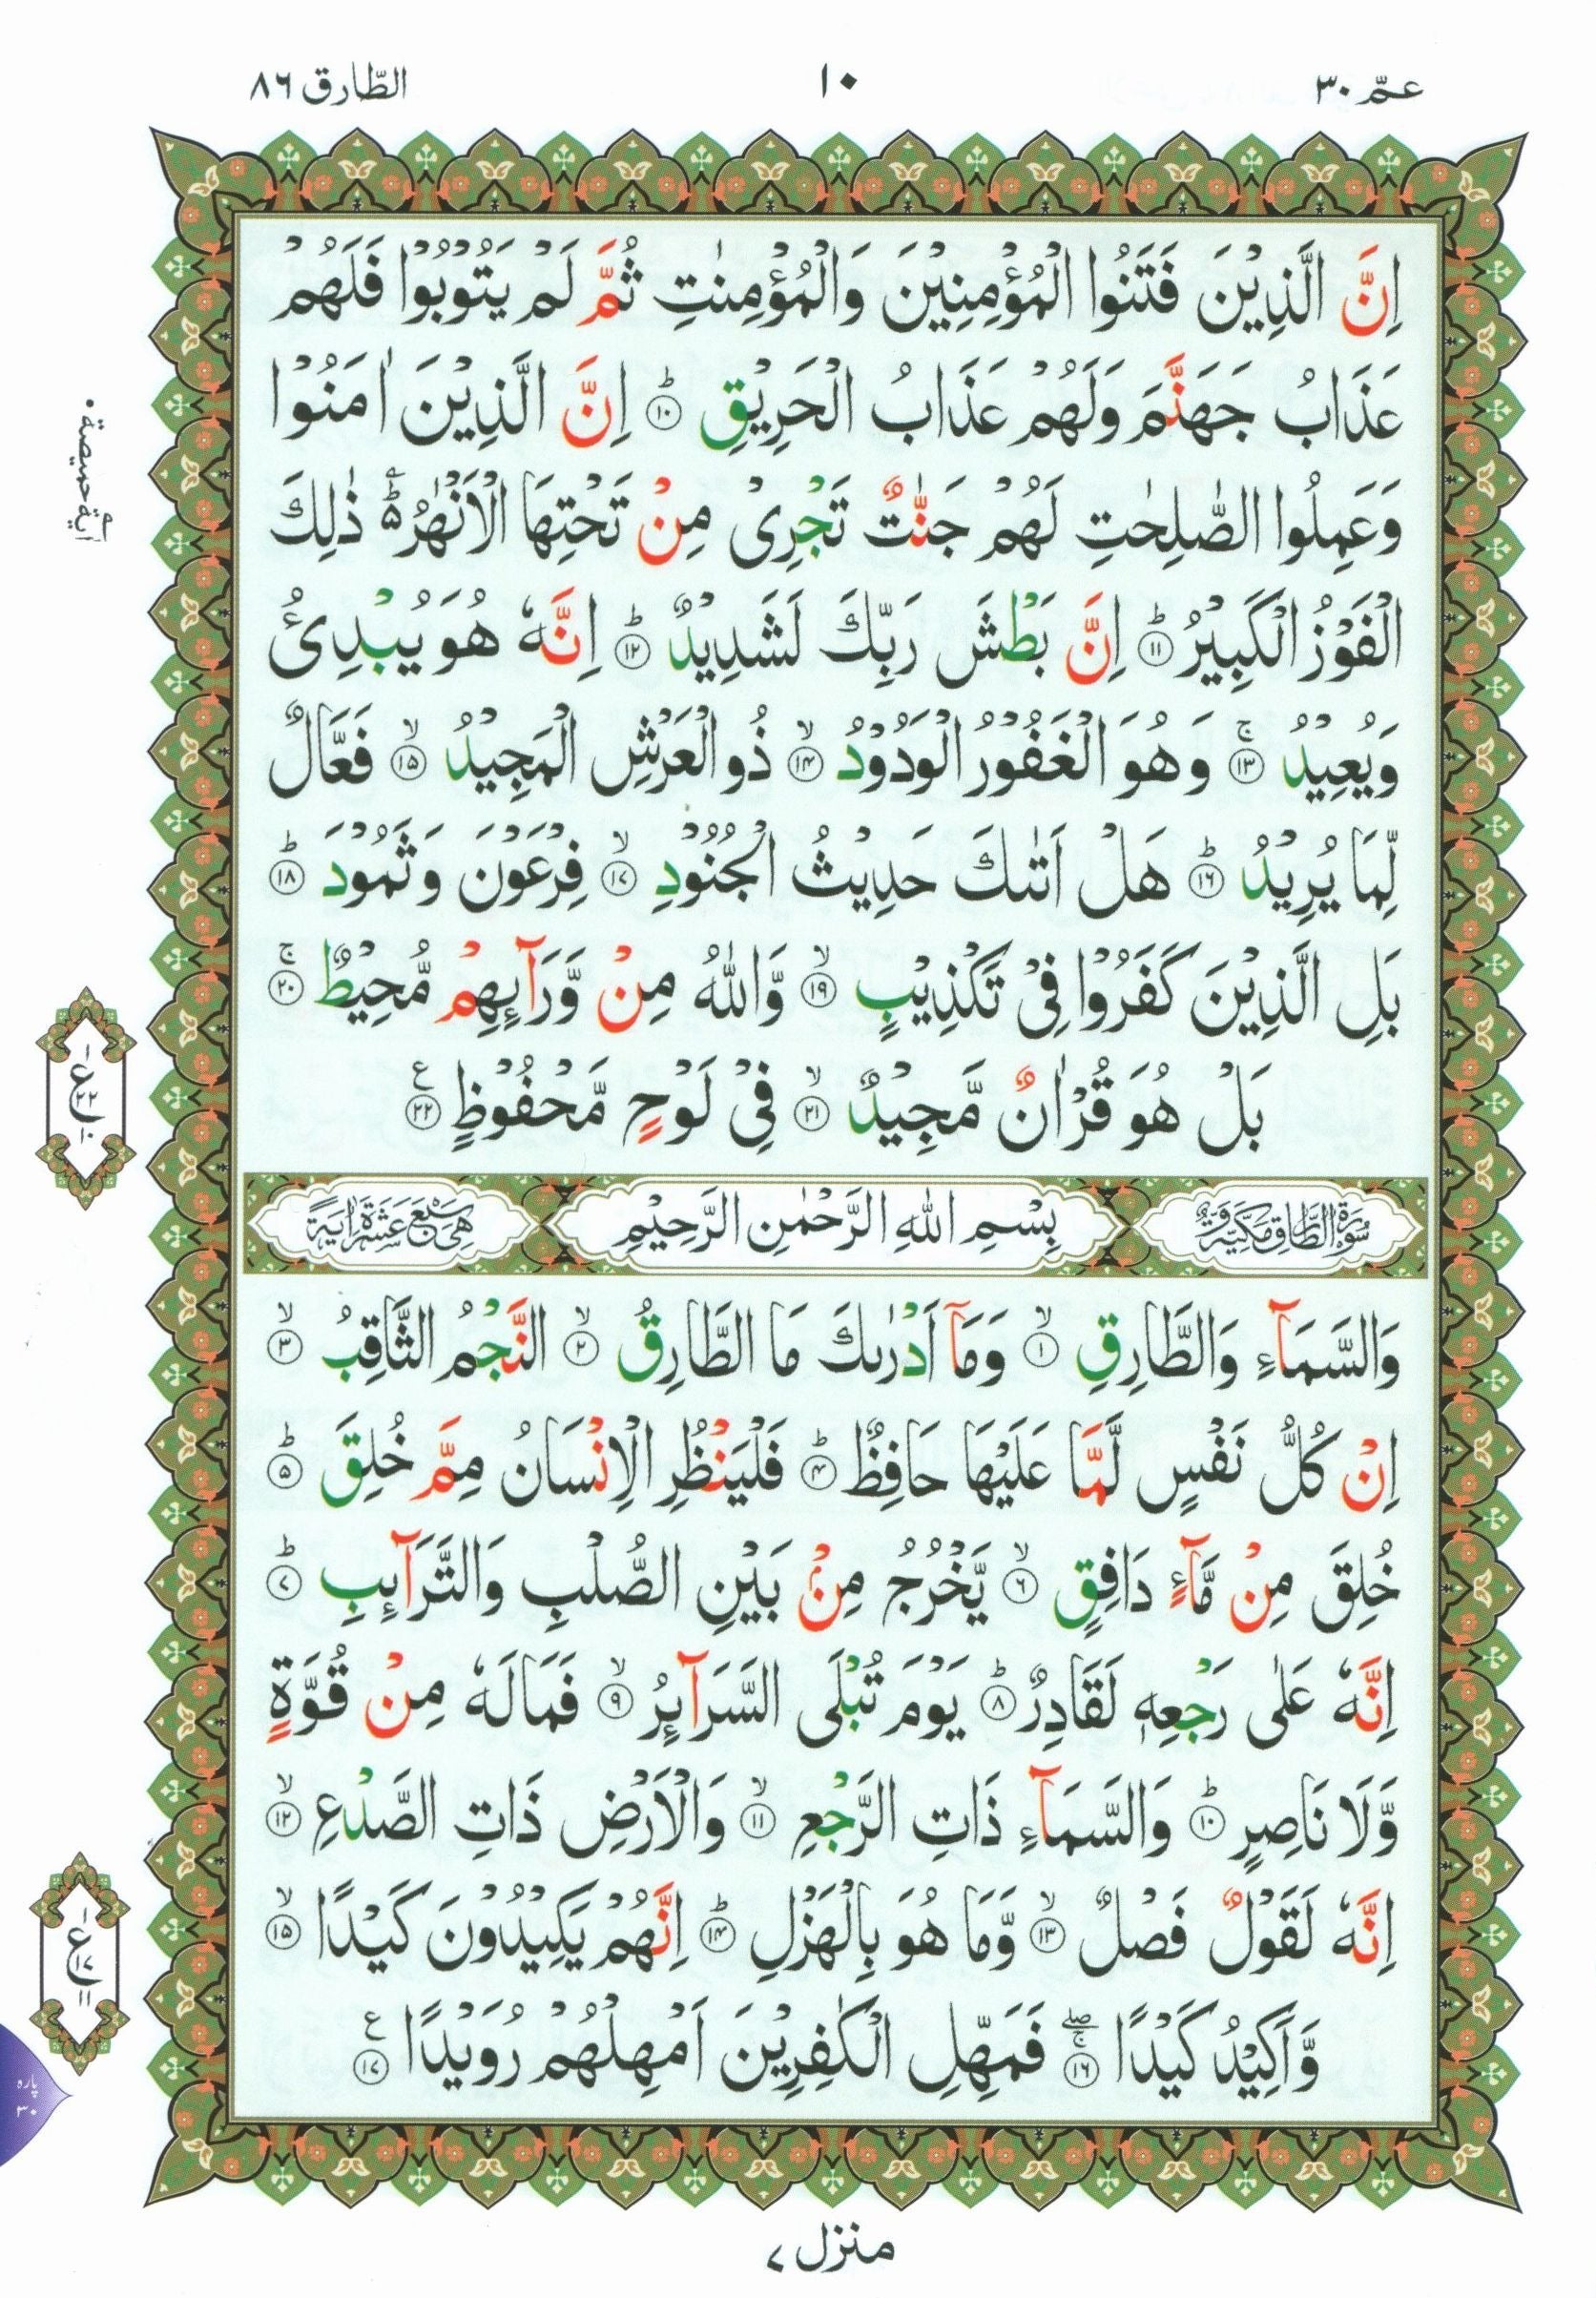 عمّ ٣٠
١٠
الطّارق ٨٦
اِنَّ الَّذِيْنَ فَتَنُوا الْمُؤْمِنِيْنَ وَالْمُؤْمِنٰتِ ثُمَّ لَمْ يَتُوْبُوْا فَلَهُمْ
عَذَابُ جَهَنَّمَ وَلَهُمْ عَذَابُ الْحَرِيْقِ ؕ ١٠ اِنَّ الَّذِيْنَ اٰمَنُوْا
وَعَمِلُوا الصّٰلِحٰتِ لَهُمْ جَنّٰتٌ تَجْرِىْ مِنْ تَحْتِهَا الْاَنْهٰرُ ۬ؕ ذٰلِكَ
الْفَوْزُ الْكَبِيْرُ ؕ ١١ اِنَّ بَطْشَ رَبِّكَ لَشَدِيْدٌ ؕ ١٢ اِنَّهٗ هُوَ يُبْدِئُ
وَيُعِيْدُ ۚ ١٣ وَهُوَ الْغَفُوْرُ الْوَدُوْدُ ۙ ١٤ ذُو الْعَرْشِ الْمَجِيْدُ ۙ ١٥ فَعَّالٌ
لِّمَا يُرِيْدُ ؕ ١٦ هَلْ اَتٰىكَ حَدِيْثُ الْجُنُوْدِ ۙ ١٧ فِرْعَوْنَ وَثَمُوْدَ ؕ ١٨
بَلِ الَّذِيْنَ كَفَرُوْا فِىْ تَكْذِيْبٍ ۙ ١٩ وَّاللّٰهُ مِنْ وَّرَآئِهِمْ مُّحِيْطٌ ۚ ٢٠
بَلْ هُوَ قُرْاٰنٌ مَّجِيْدٌ ۙ ٢١ فِىْ لَوْحٍ مَّحْفُوْظٍ ٢٢ ع
سُوْرَةُ الطَّارِقِ مَكِّيَّةٌ وَّ بِسْمِ اللّٰهِ الرَّحْمٰنِ الرَّحِيْمِ هِىَ سَبْعَ عَشْرَةَ اٰيَةً
وَالسَّمَآءِ وَالطَّارِقِ ۙ ١ وَمَآ اَدْرٰىكَ مَا الطَّارِقُ ۙ ٢ النَّجْمُ الثَّاقِبُ ۙ ٣
اِنْ كُلُّ نَفْسٍ لَّمَّا عَلَيْهَا حَافِظٌ ؕ ٤ فَلْيَنْظُرِ الْاِنْسَانُ مِمَّ خُلِقَ ؕ ٥
خُلِقَ مِنْ مَّآءٍ دَافِقٍ ۙ ٦ يَّخْرُجُ مِنْۢ بَيْنِ الصُّلْبِ وَالتَّرَآئِبِ ؕ ٧
اِنَّهٗ عَلٰى رَجْعِهٖ لَقَادِرٌ ؕ ٨ يَوْمَ تُبْلَى السَّرَآئِرُ ۙ ٩ فَمَا لَهٗ مِنْ قُوَّةٍ
وَّلَا نَاصِرٍ ؕ ١٠ وَالسَّمَآءِ ذَاتِ الرَّجْعِ ۙ ١١ وَالْاَرْضِ ذَاتِ الصَّدْعِ ۙ ١٢
اِنَّهٗ لَقَوْلٌ فَصْلٌ ۙ ١٣ وَّمَا هُوَ بِالْهَزْلِ ؕ ١٤ اِنَّهُمْ يَكِيْدُوْنَ كَيْدًا ۙ ١٥
وَّاَكِيْدُ كَيْدًا ۚۖ ١٦ فَمَهِّلِ الْكٰفِرِيْنَ اَمْهِلْهُمْ رُوَيْدًا ١٧ ع
ع
١
٢٢
١٠
ع
١
١٧
١١
پاره
٣٠
منزل ٧